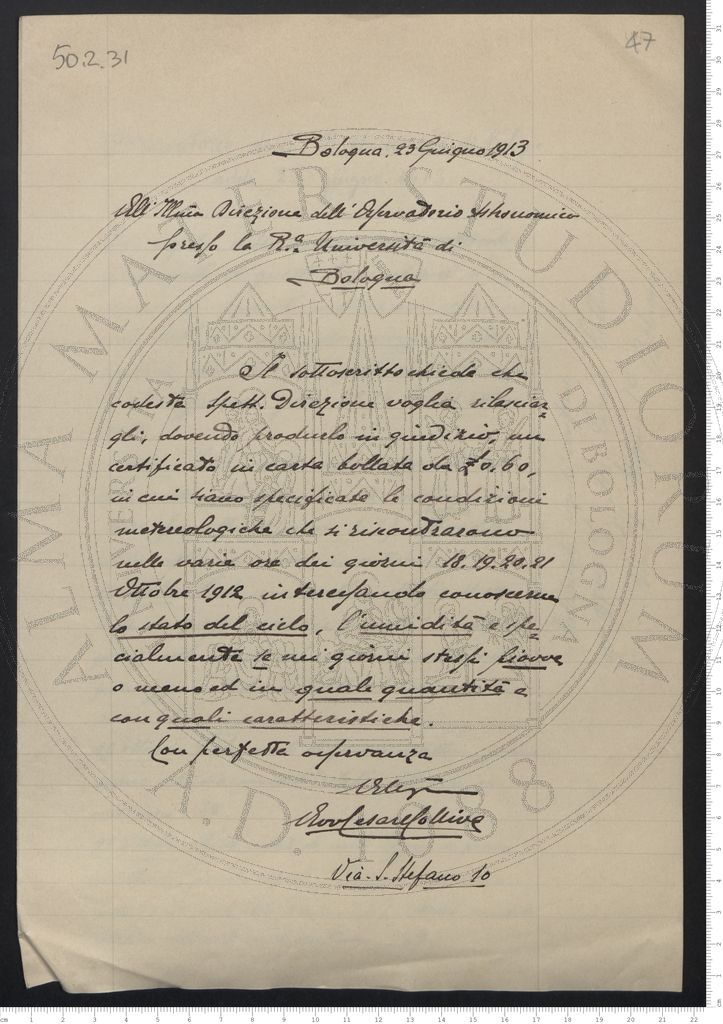 50.2.31
47
Bologna, 23 Giugno 1913
All' Ill.ma Direzione dell' Osservatorio Astronomico
presso la R.a Università di
Bologna
Il sottoscritto chiede che
codesta Spett. Direzione voglia rilasciar=
gli, dovendo produrlo in giudizio, un
certificato in carta bollata da £ 0.60,
in cui siano specificate le condizioni
metereologiche che si riscontrarono
nelle varie ore dei giorni 18.19.20.21
Ottobre 1912 interessando conoscerne
lo stato del cielo, l'umidità e spe=
cialmente se nei giorni stessi piovve
o meno ed in quale quantità e
con quali caratteristiche.
Con perfetta osservanza
Avv Cesare Collina
Via S. Stefano 10
ALMA MATER STUDIORUM
UNIVERSITÀ DI BOLOGNA
A.D. 1088